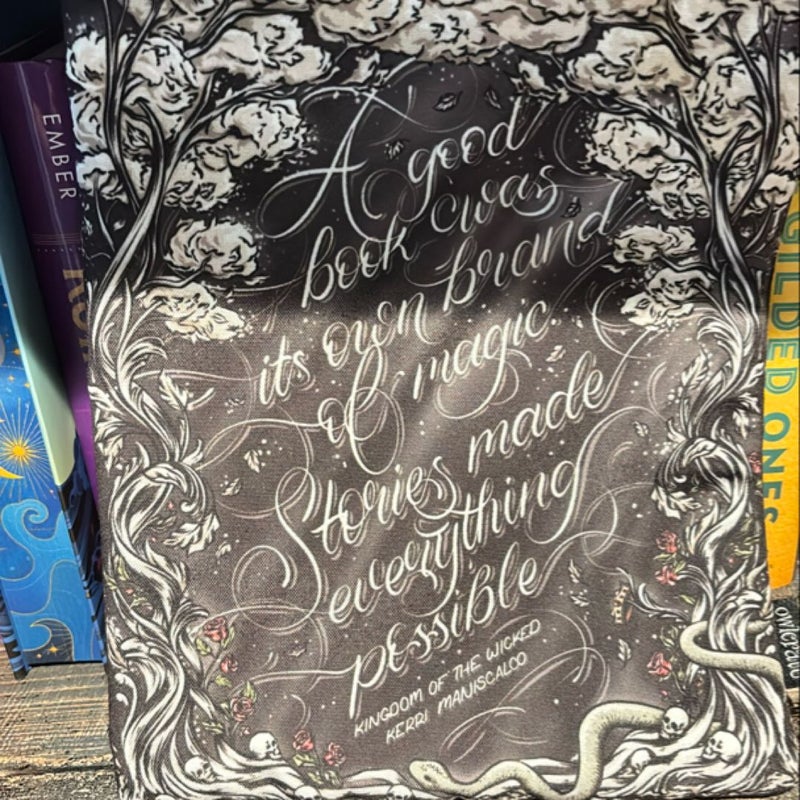 EMBER
A good
book was
its own brand
of magic.
Stories made
everything
possible
KINGDOM OF THE WICKED
KERRI MANISCALCO
GILDED ONES
owlcrate